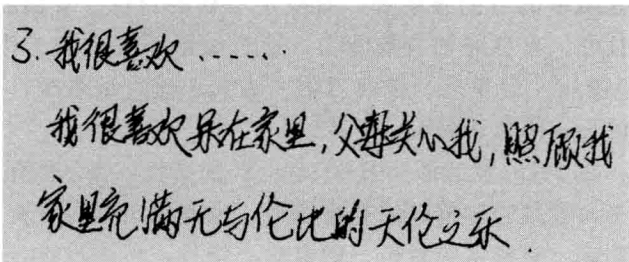 3. 我很喜欢......
我很喜欢呆在家里,父母关心我,照顾我
家里充满无与伦比的天伦之乐.